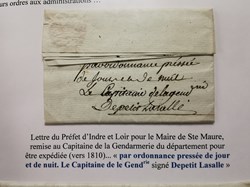 urs ordres aux administrations ...
par ordonnance pressée
de jour et de nuit
Le Capitaine de la gend
Depetit Lasalle
Lettre du Préfet d'Indre et Loir pour le Maire de Ste Maure,
remise au Capitaine de la Gendarmerie du département pour
être expédiée (vers 1810)... « par ordonnance pressée de jour
et de nuit. Le Capitaine de le Gendrie signé Depetit Lasalle »